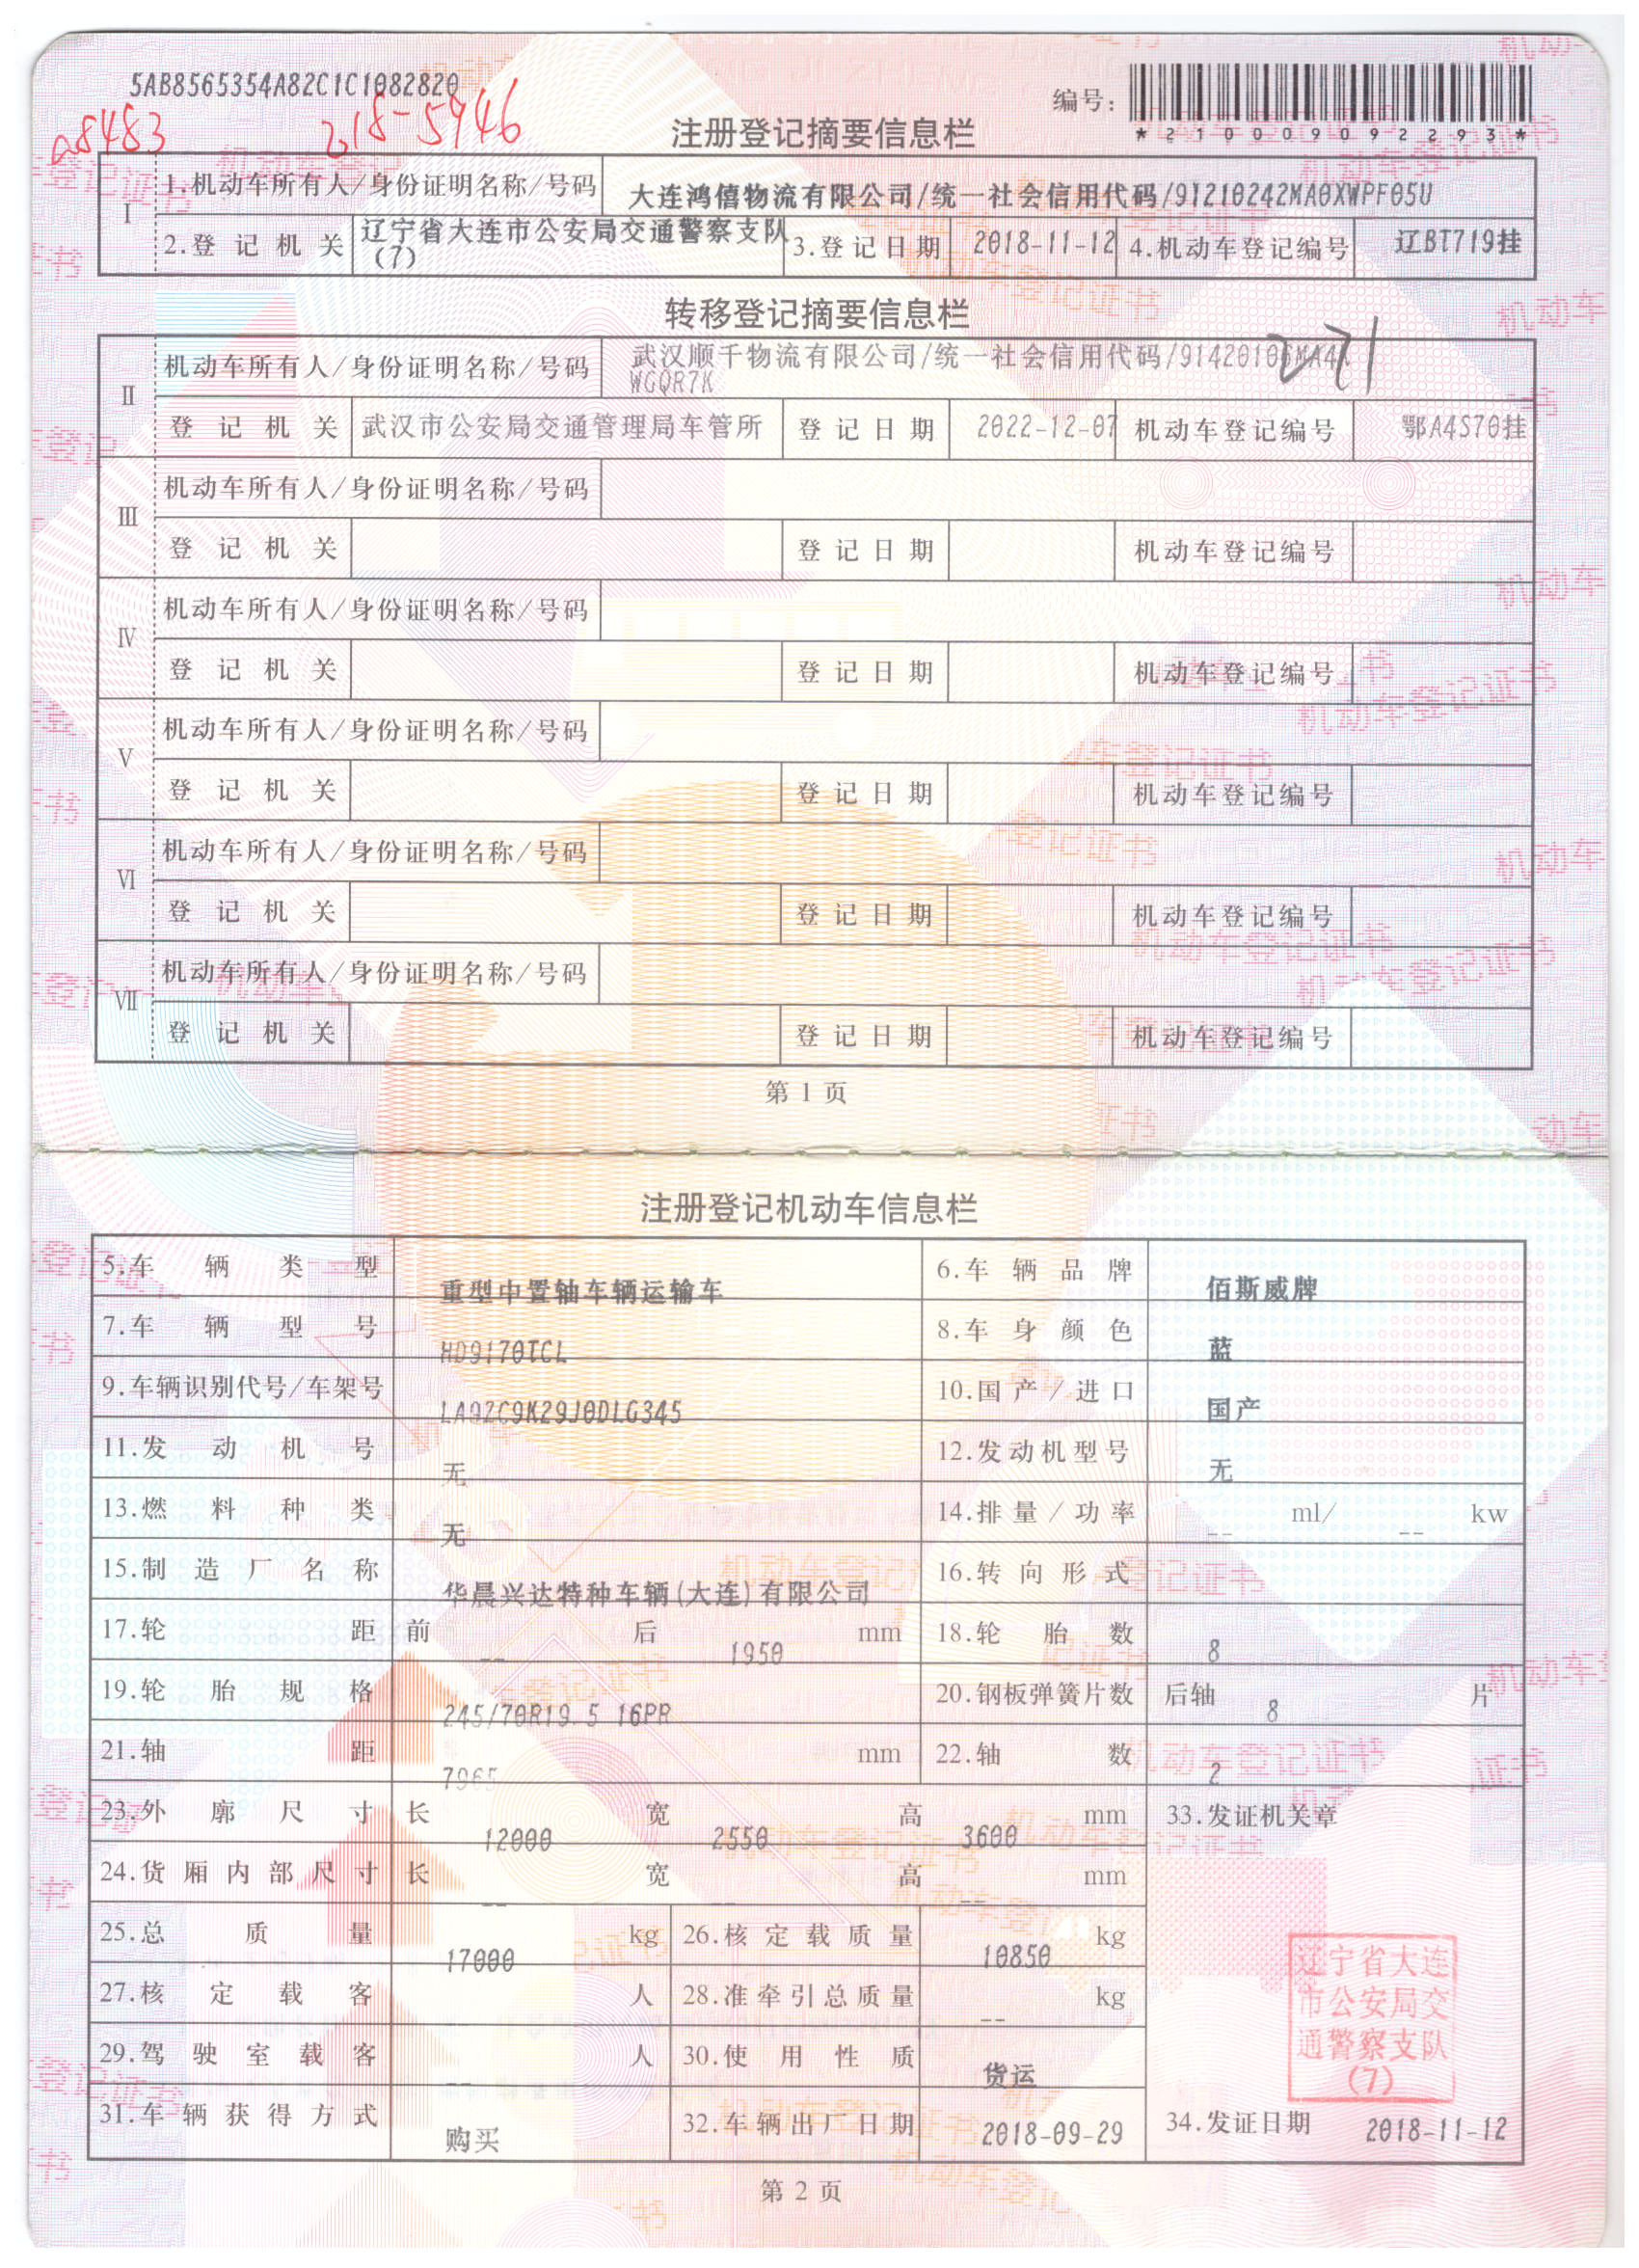 5AB8565354A82C1C1082820
a8483
218-5946
编号:
*210009092293*
注册登记摘要信息栏
I
1.机动车所有人/身份证明名称/号码 大连鸿禧物流有限公司/统一社会信用代码/91210242MA0XWPF05U
2.登记机关 辽宁省大连市公安局交通警察支队(7) 3.登记日期 2018-11-12 4.机动车登记编号 辽BT719挂
转移登记摘要信息栏
271
II
机动车所有人/身份证明名称/号码 武汉顺千物流有限公司/统一社会信用代码/
WGQR7K
登记机关 武汉市公安局交通管理局车管所 登记日期 2022-12-07 机动车登记编号 鄂A4S70挂
III
机动车所有人/身份证明名称/号码
登记机关 登记日期 机动车登记编号
IV
机动车所有人/身份证明名称/号码
登记机关 登记日期 机动车登记编号
V
机动车所有人/身份证明名称/号码
登记机关 登记日期 机动车登记编号
VI
机动车所有人/身份证明名称/号码
登记机关 登记日期 机动车登记编号
VII
机动车所有人/身份证明名称/号码
登记机关 登记日期 机动车登记编号
第 1 页
注册登记机动车信息栏
5.车辆类型 重型中置轴车辆运输车 6.车辆品牌 佰斯威牌
7.车辆型号 HD9170TCL 8.车身颜色 蓝
9.车辆识别代号/车架号 LA9ZC9K29J0DLG345 10.国产/进口 国产
11.发动机号 无 12.发动机型号 无
13.燃料种类 无 14.排量/功率 -- ml/ -- kw
15.制造厂名称 华晨兴达特种车辆(大连)有限公司 16.转向形式
17.轮距 前 -- 后 1950 mm 18.轮胎数 8
19.轮胎规格 245/70R19.5 16PR 20.钢板弹簧片数 后轴 8 片
21.轴距 7965 mm 22.轴数 2
23.外廓尺寸 长 12000 宽 2550 高 3600 mm 33.发证机关章
24.货厢内部尺寸 长 -- 宽 -- 高 -- mm
25.总质量 17000 kg 26.核定载质量 10850 kg
27.核定载客 -- 人 28.准牵引总质量 -- kg
29.驾驶室载客 -- 人 30.使用性质 货运
辽宁省大连
市公安局交
通警察支队
(7)
31.车辆获得方式 购买 32.车辆出厂日期 2018-09-29 34.发证日期 2018-11-12
第 2 页